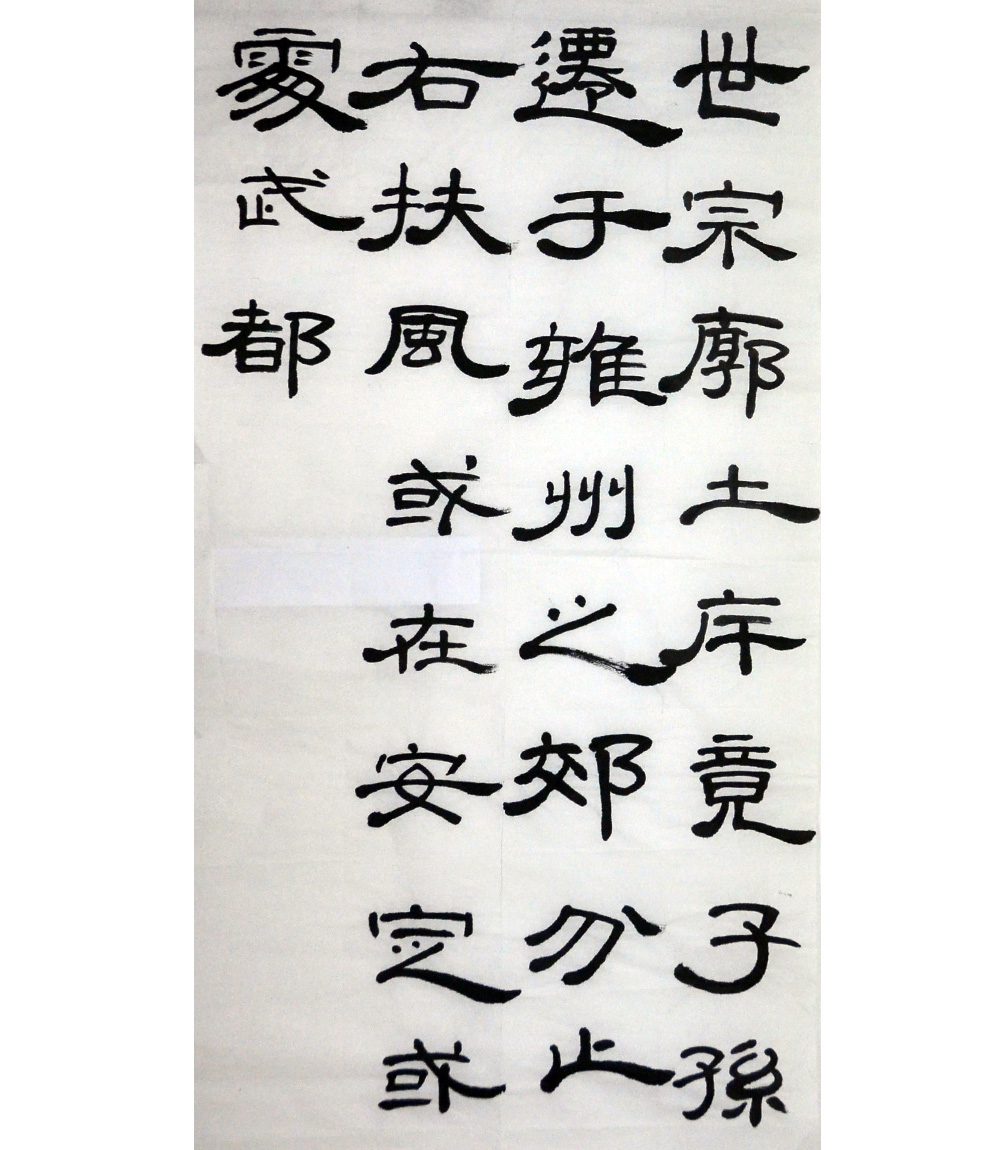 世宗廓土斥竟子孫
遷于雍州之郊分止
右扶風或在安定或
處武都